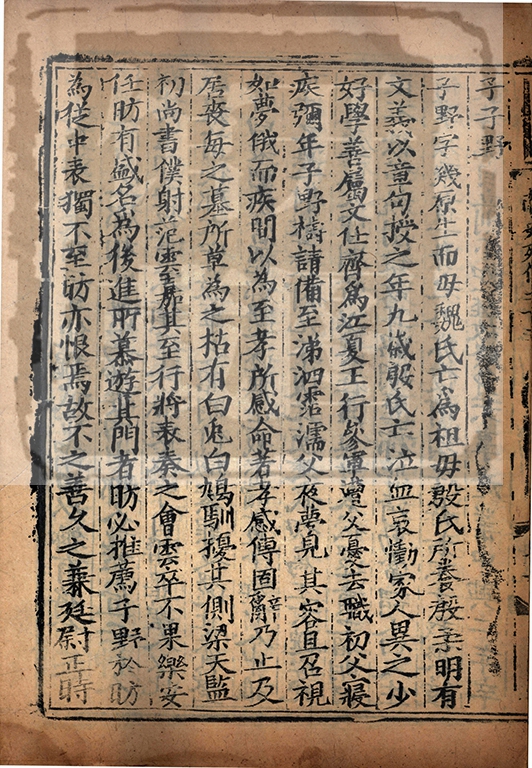 子子野
子野字幾原生而母魏氏亡爲祖母殷氏所養殷柔明有
文義以章句授之年九歲殷氏亡泣血哀慟家人異之少
好學善屬文仕齊爲江夏王行參軍遭父憂去職初父寢
疾彌年子野禱請備至涕泗霑濡父夜夢見其容旦召視
如夢俄而疾間以為至孝所感命著孝感傳固辭乃止及
居喪每之墓所草為之枯有白兔白鳩馴擾其側梁天監
初尚書僕射范雲嘉其至行將表奏之會雲卒不果樂安
任昉有盛名為後進所慕遊其門者昉必推薦子野於昉
為從中表獨不至昉亦恨焉故不之善久之兼廷尉正時